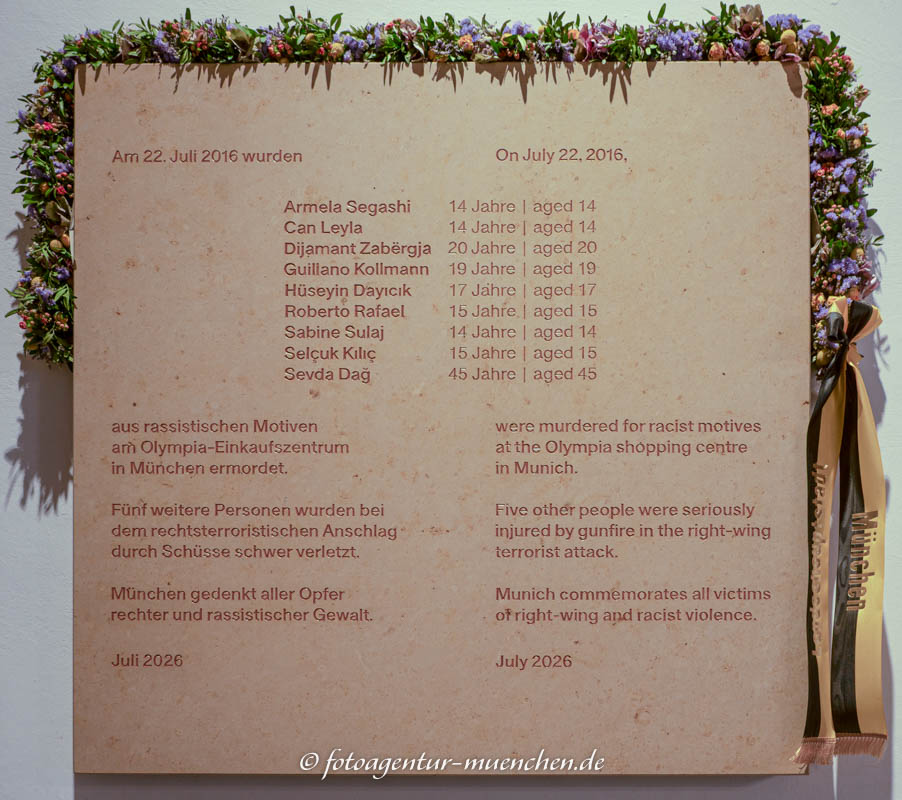 Am 22. Juli 2016 wurden
On July 22, 2016,
Armela Segashi 14 Jahre | aged 14
Can Leyla 14 Jahre | aged 14
Dijamant Zabërgja 20 Jahre | aged 20
Guiliano Kollmann 19 Jahre | aged 19
Hüseyin Dayıcık 17 Jahre | aged 17
Roberto Rafael 15 Jahre | aged 15
Sabine Sulaj 14 Jahre | aged 14
Selçuk Kılıç 15 Jahre | aged 15
Sevda Dağ 45 Jahre | aged 45
aus rassistischen Motiven
am Olympia-Einkaufszentrum
in München ermordet.
Fünf weitere Personen wurden bei
dem rechtsterroristischen Anschlag
durch Schüsse schwer verletzt.
München gedenkt aller Opfer
rechter und rassistischer Gewalt.
Juli 2026
were murdered for racist motives
at the Olympia shopping centre
in Munich.
Five other people were seriously
injured by gunfire in the right-wing
terrorist attack.
Munich commemorates all victims
of right-wing and racist violence.
July 2026
München
© fotoagentur-muenchen.de